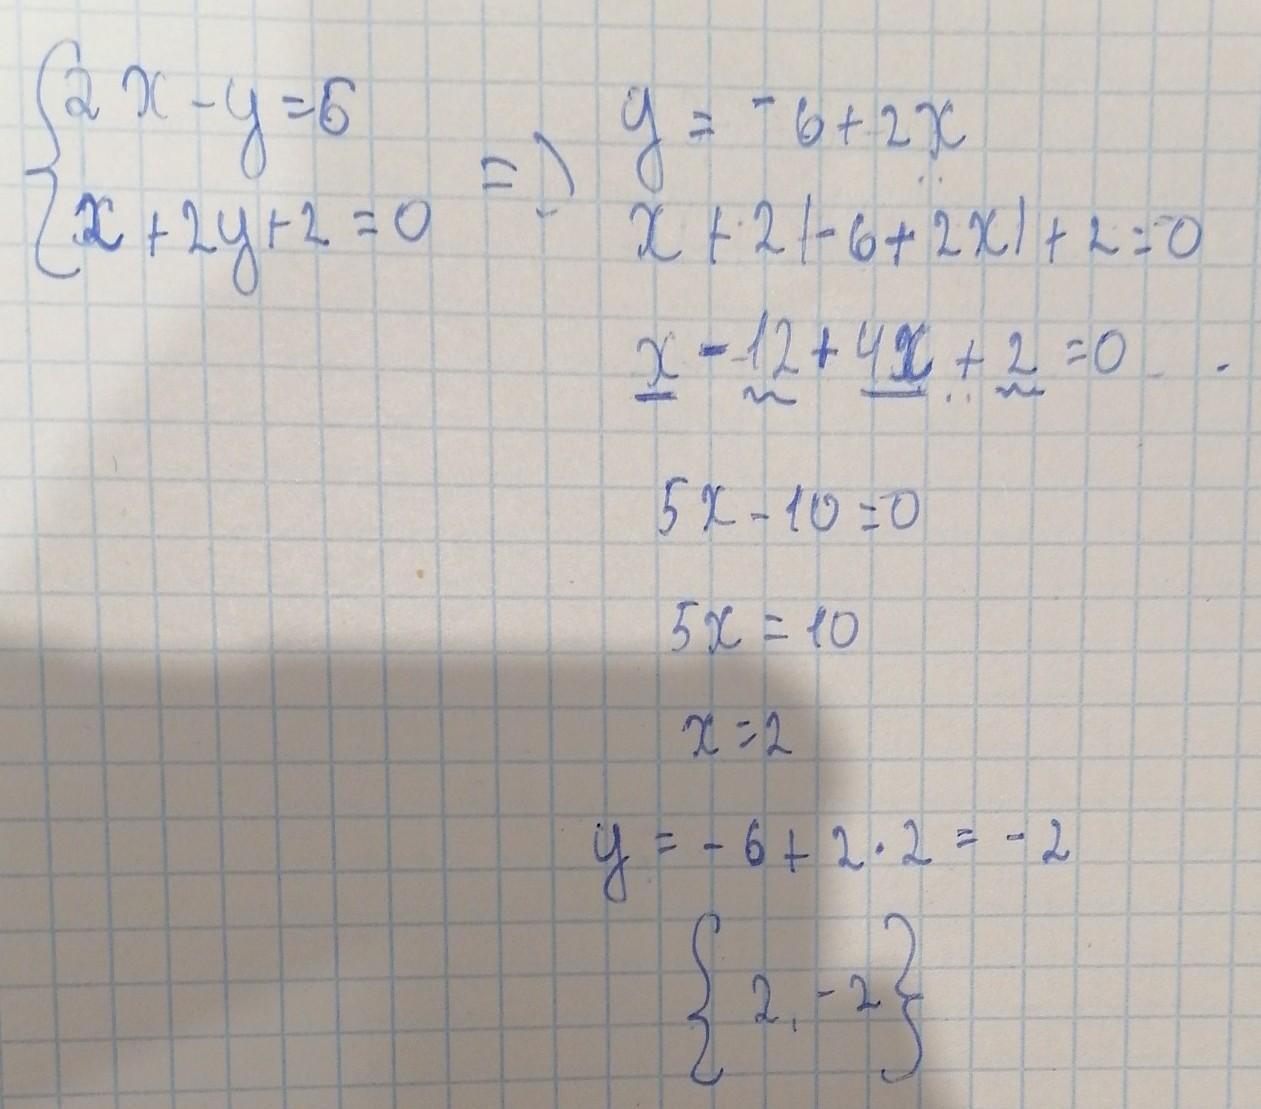 2x - y = 6
x + 2y + 2 = 0
=>
y = -6 + 2x
x + 2(-6 + 2x) + 2 = 0
x - 12 + 4x + 2 = 0
5x - 10 = 0
5x = 10
x = 2
y = -6 + 2 · 2 = -2
{2, -2}